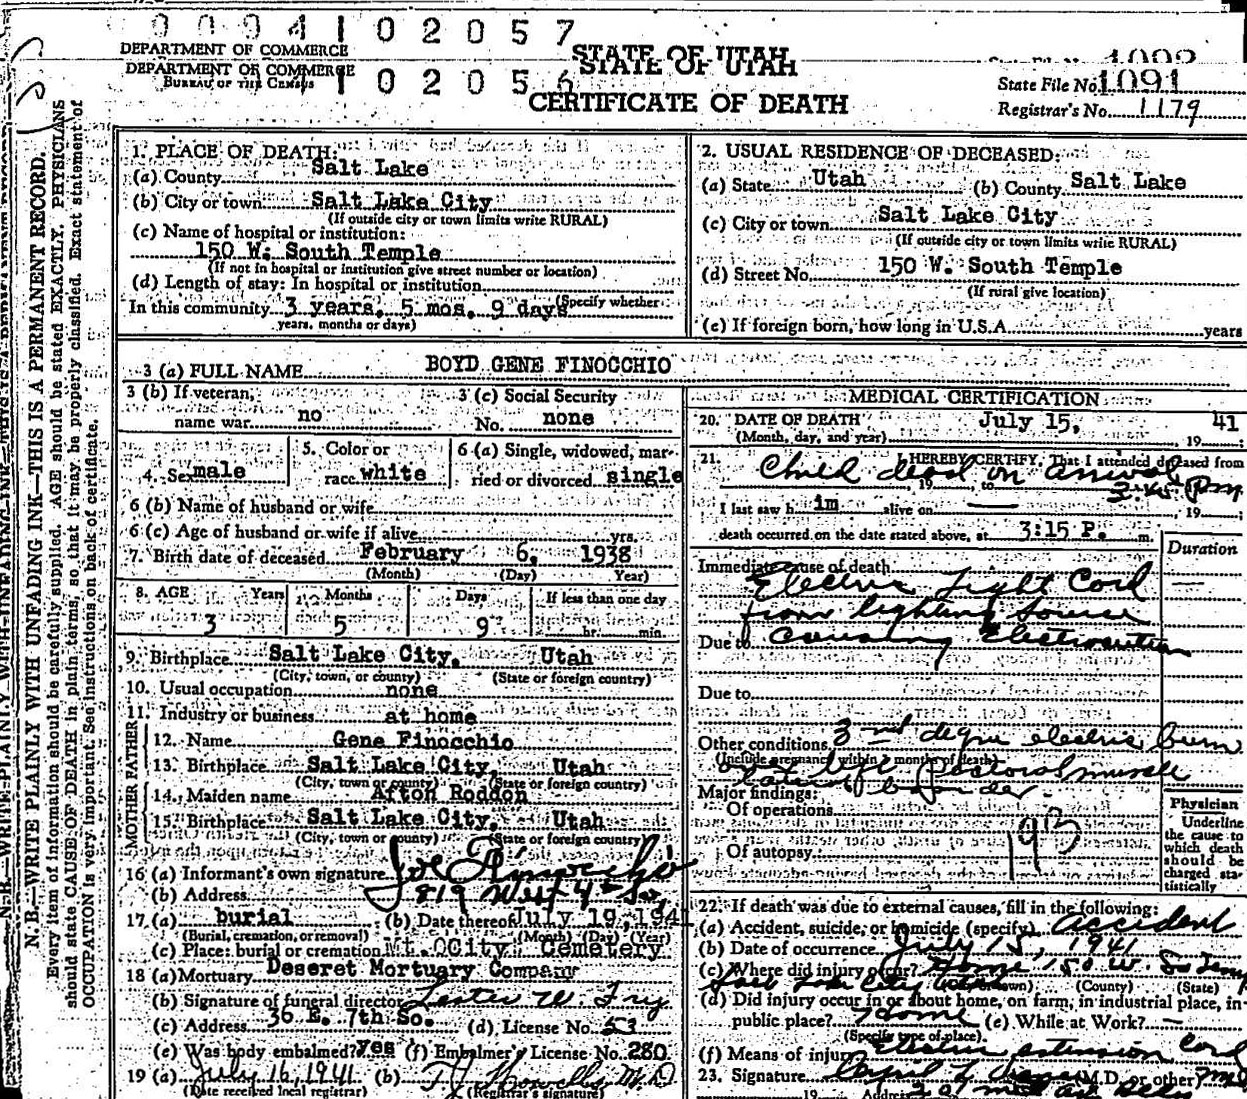 0 0 9 4 1 0 2 0 5 7
DEPARTMENT OF COMMERCE
STATE OF UTAH
DEPARTMENT OF COMMERCE
BUREAU OF THE CENSUS
0 2 0 5 6
STATE OF UTAH
State File No. 1091
CERTIFICATE OF DEATH
Registrar's No. 1179
N. B.—WRITE PLAINLY WITH UNFADING INK—THIS IS A PERMANENT RECORD.
Every item of information should be carefully supplied. AGE should be stated EXACTLY. PHYSICIANS
should state CAUSE OF DEATH in plain terms, so that it may be properly classified. Exact statement of
OCCUPATION is very important. See instructions on back of certificate.
1. PLACE OF DEATH:
(a) County Salt Lake
(b) City or town Salt Lake City
(If outside city or town limits write RURAL)
(c) Name of hospital or institution:
150 W. South Temple
(If not in hospital or institution give street number or location)
(d) Length of stay: In hospital or institution
(Specify whether
In this community 3 years, 5 mos. 9 days
years, months or days)
2. USUAL RESIDENCE OF DECEASED:
(a) State Utah (b) County Salt Lake
(c) City or town Salt Lake City
(If outside city or town limits write RURAL)
(d) Street No. 150 W. South Temple
(If rural give location)
(e) If foreign born, how long in U.S.A. years
3 (a) FULL NAME BOYD GENE FINOCCHIO
3 (b) If veteran, name war no
3 (c) Social Security No. none
4. Sex male
5. Color or race white
6 (a) Single, widowed, married or divorced single
6 (b) Name of husband or wife
6 (c) Age of husband or wife if alive yrs.
7. Birth date of deceased February 6, 1938
(Month) (Day) Year)
8. AGE Years Months Days If less than one day
3 5 9 hr. min.
9. Birthplace Salt Lake City, Utah
(City, town, or county) (State or foreign country)
10. Usual occupation none
11. Industry or business at home
FATHER
12. Name Gene Finocchio
13. Birthplace Salt Lake City, Utah
(City, town or county) (State or foreign country)
MOTHER
14. Maiden name Afton Roddon
15. Birthplace Salt Lake City, Utah
(City, town or county) (State or foreign country)
16 (a) Informant's own signature Joe Finocchio
(b) Address 819 West 4th So.
17. (a) burial (b) Date thereof July 19, 1941
(Burial, cremation, or removal) (Month) (Day) (Year)
(c) Place: burial or cremation City Cemetery
18 (a) Mortuary Deseret Mortuary Company
(b) Signature of funeral director Lester W. Fry
(c) Address 36 E. 7th So. (d) License No. 53
(e) Was body embalmed? yes (f) Embalmer's License No. 280
19 (a) July 16, 1941 (b) M.D.
(Date received local registrar) (Registrar's signature)
MEDICAL CERTIFICATION
20. DATE OF DEATH July 15, 19 41
(Month, day, and year)
21. I HEREBY CERTIFY, That I attended deceased from
Child dead on arrival 3:45 Pm
19 to 19
I last saw h im alive on 19
death occurred on the date stated above, at 3:15 P. m.
Duration
Immediate cause of death
Electric Light Cord
from lighting source
Due to causing Electrocution
Due to
Other conditions 3rd degree electric burn
(Include pregnancy within 3 months of death)
of left Pectoral muscle
Major findings:
Of operations
Of autopsy
193
Physician
Underline
the cause to
which death
should be
charged sta-
tistically
22. If death was due to external causes, fill in the following:
(a) Accident, suicide, or homicide (specify) Accident
(b) Date of occurrence July 15, 1941
(c) Where did injury occur? Home 150 W. So Temp
Salt Lake City (County) (State)
(d) Did injury occur in or about home, on farm, in industrial place, in
public place? Home (e) While at Work? —
(Specify type of place)
(f) Means of injury Electric extension cord
23. Signature (M.D. or other) MD
19 Address